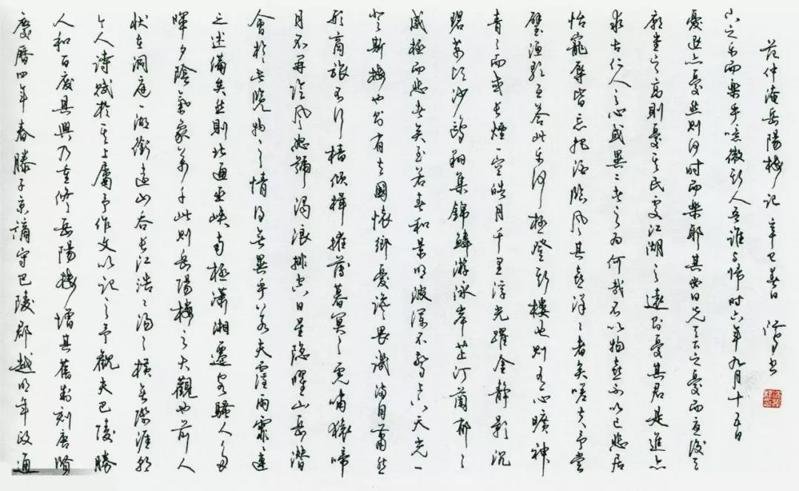 慶曆四年春滕子京謫守巴陵郡越明年政通
人和百廢具興乃重修岳陽樓增其舊制刻唐賢
今人詩賦於其上屬予作文以記之予觀夫巴陵勝
狀在洞庭一湖銜遠山吞長江浩々湯々橫無際涯朝
暉夕陰氣象萬千此則岳陽樓之大觀也前人
之述備矣然則北通巫峽南極瀟湘遷客騷人多
會於此覽物之情得無異乎若夫霪雨霏連
月不開陰風怒號濁浪排空日星隱曜山岳潛
形商旅不行檣傾楫摧薄暮冥々虎嘯猿啼
登斯樓也則有去國懷鄉憂讒畏譏滿目蕭然
感極而悲者矣至若春和景明波瀾不驚上下天光一
碧萬頃沙鷗翔集錦鱗游泳岸芷汀蘭郁々
青々而或長煙一空皓月千里浮光躍金靜影沉
璧漁歌互答此樂何極登斯樓也則有心曠神
怡寵辱皆忘把酒臨風其喜洋々者矣嗟夫予嘗
求古仁人之心或異二者之為何哉不以物喜不以己悲居
廟堂之高則憂其民處江湖之遠則憂其君是進亦
憂退亦憂然則何時而樂耶其必曰先天下之憂而憂後
天下之樂而樂乎噫微斯人吾誰與歸時六年九月十五日
范仲淹岳陽樓記 辛巳春日